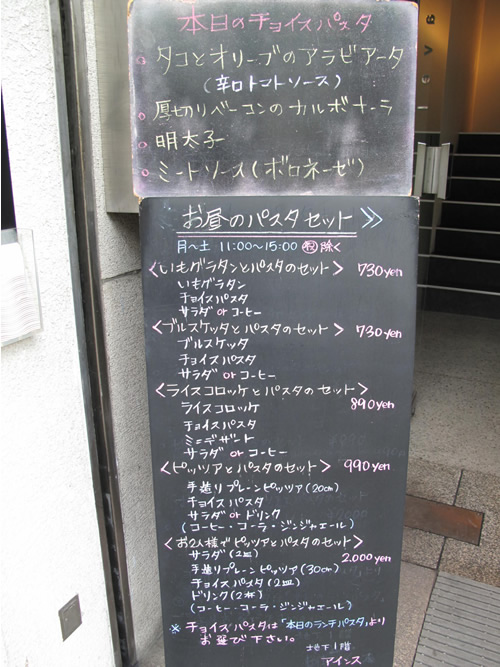 本日のチョイスパスタ
タコとオリーブのアラビアータ
(辛口トマトソース)
厚切りベーコンのカルボナーラ
明太子
ミートソース(ボロネーゼ)
お昼のパスタセット
月〜土 11:00〜15:00 ㊗除く
<いもグラタンとパスタのセット> 730yen
いもグラタン
チョイスパスタ
サラダ or コーヒー
<ブルスケッタとパスタのセット> 730yen
ブルスケッタ
チョイスパスタ
サラダ or コーヒー
<ライスコロッケとパスタのセット>
890yen
ライスコロッケ
チョイスパスタ
ミニデザート
サラダ or コーヒー
<ピッツァとパスタのセット> 990yen
手造りプレーンピッツァ(20cm)
チョイスパスタ
サラダ or ドリンク
(コーヒー・コーラ・ジンジャエール)
<お2人様でピッツァとパスタのセット>
サラダ(2皿) 2.000yen
手造りプレーンピッツァ(30cm)
チョイスパスタ(2皿)
ドリンク(2杯)
(コーヒー・コーラ・ジンジャエール)
※チョイスパスタは「本日のランチパスタ」より
お選び下さい。
地下1階